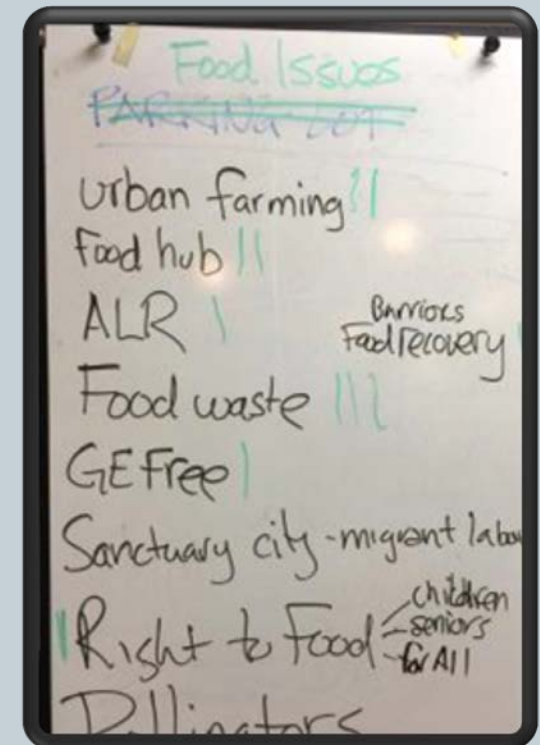 Food Issues
PARKING LOT
Urban farming
Food hub
ALR
Barriers
Food recovery
Food waste
GE Free
Sanctuary city - migrant labou
Right to Food
children
seniors
for All
Pollinators